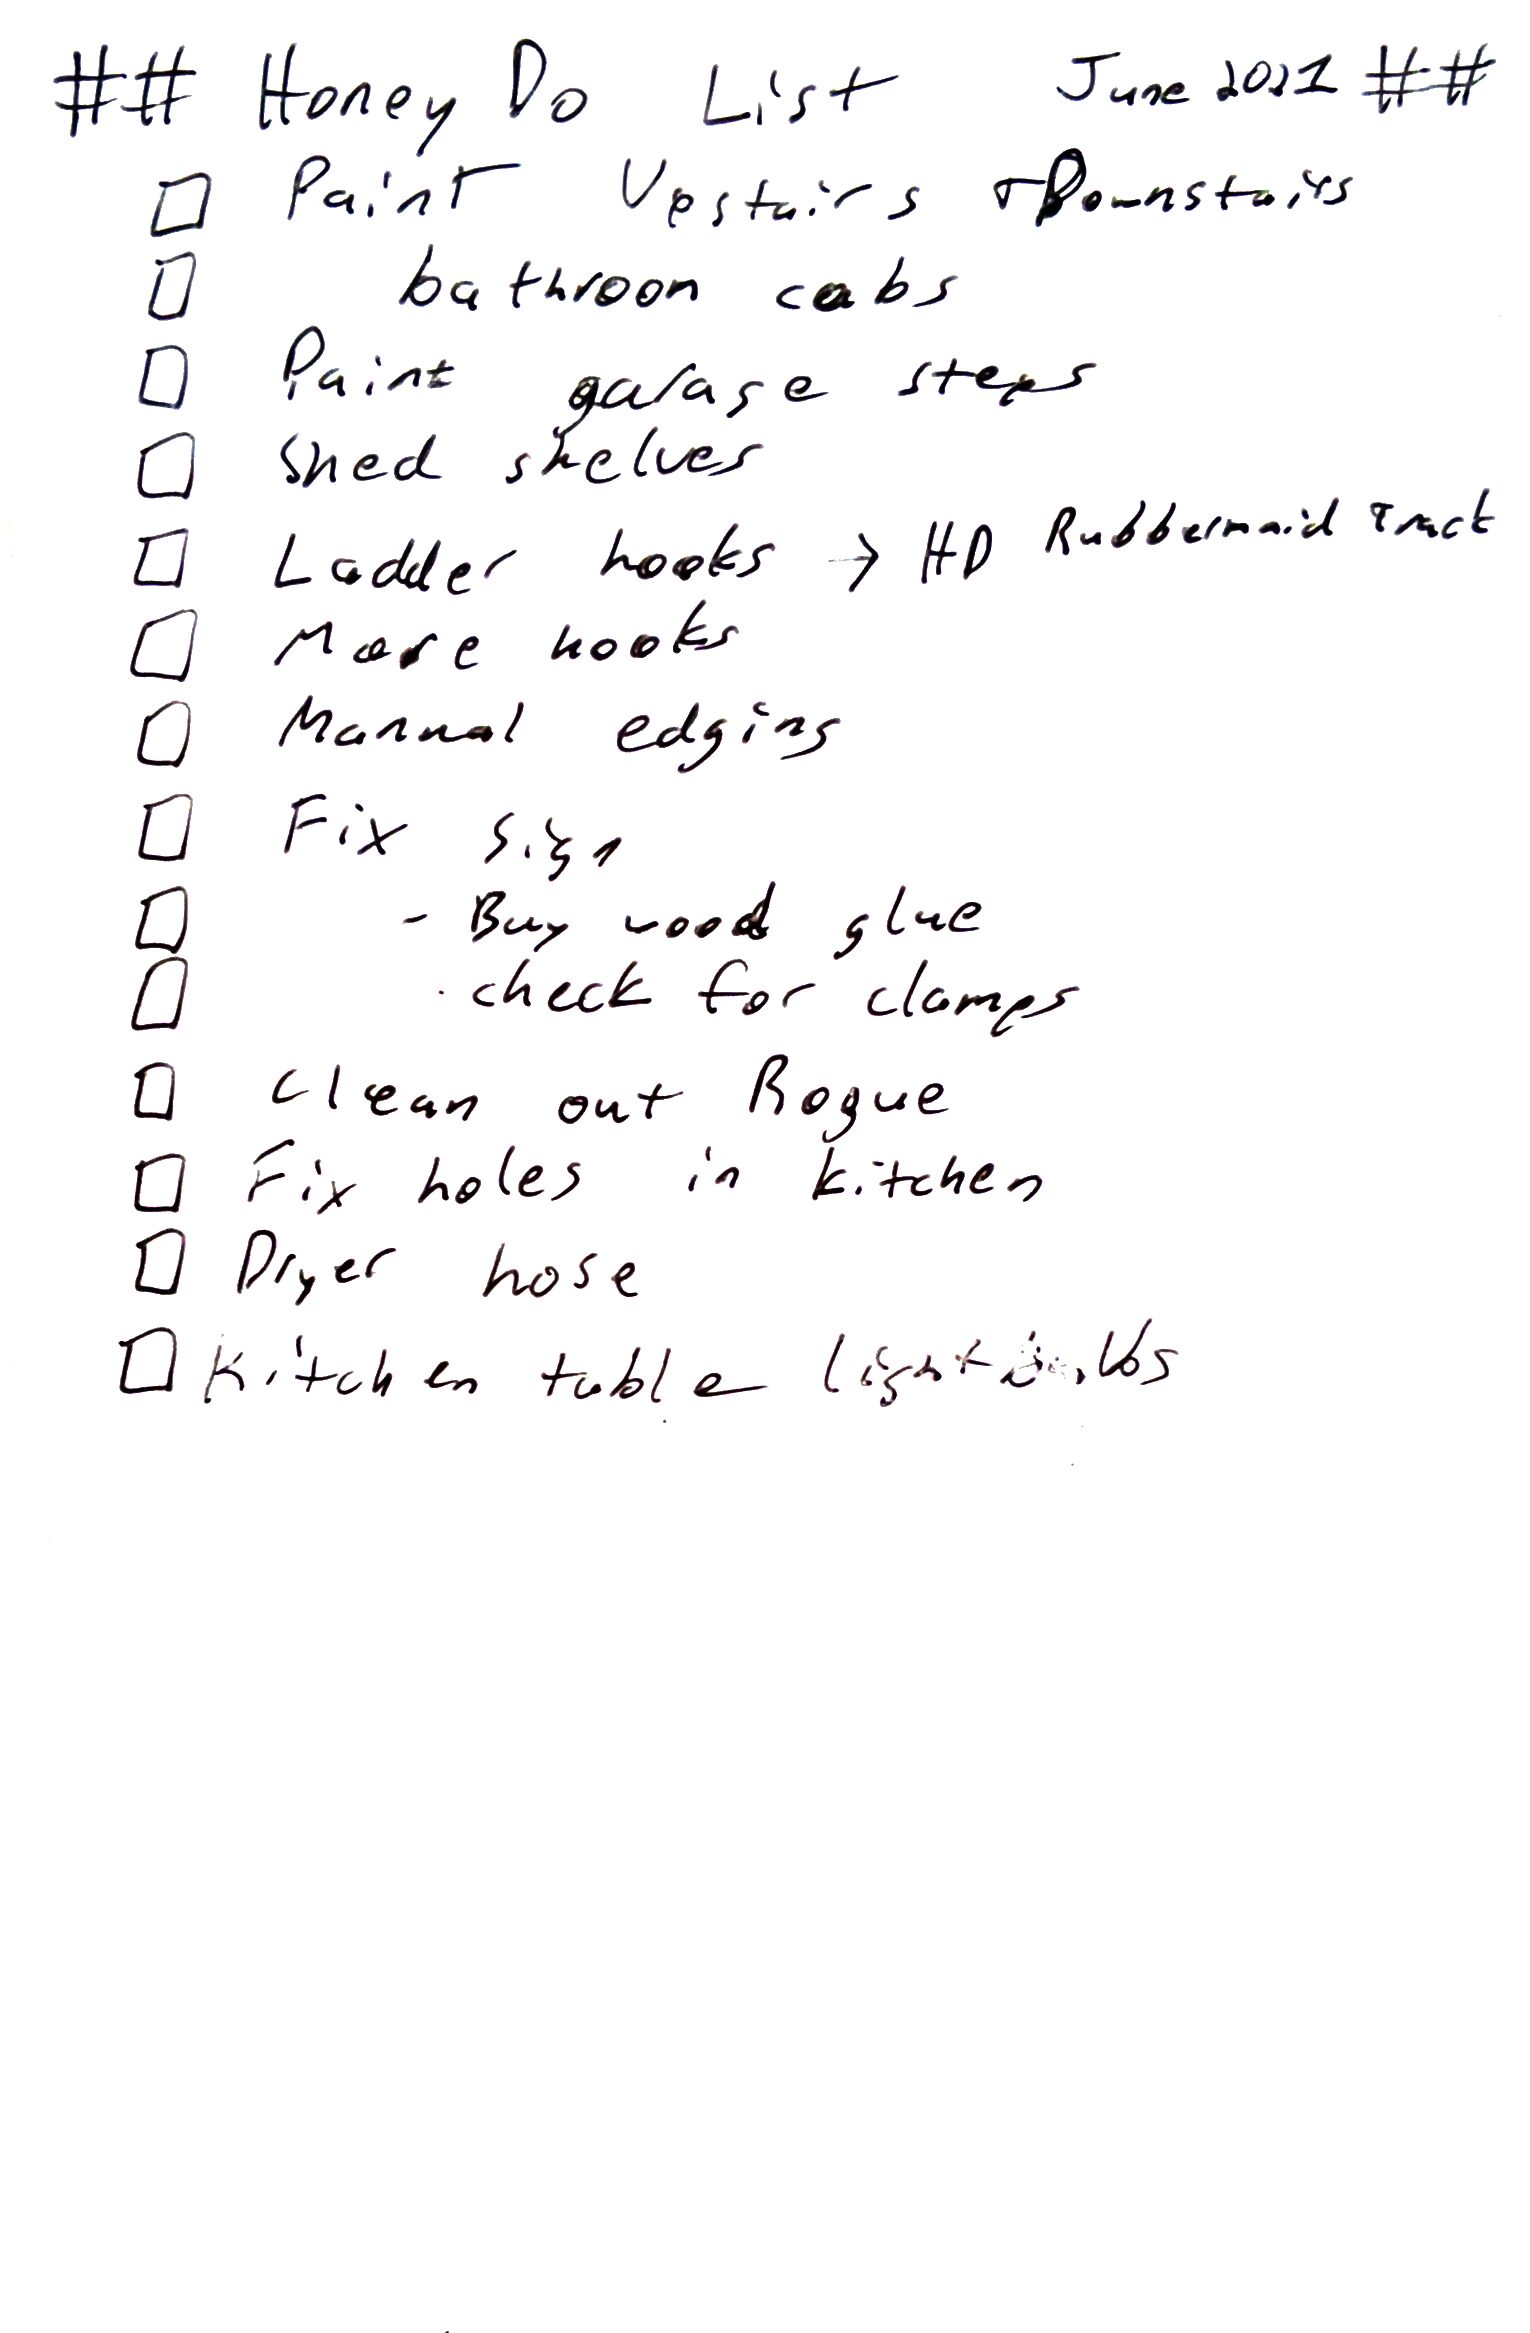 ## Honey Do List June 2021 ##
☐ Paint Upstairs + Downstairs
☐ bathroom cabs
☐ Paint garage steps
☐ Shed shelves
☐ Ladder hooks → HD Rubbermaid Track
☐ More hooks
☐ Manual edging
☐ Fix sign
☐ - Buy wood glue
☐ - check for clamps
☐ Clean out Rogue
☐ Fix holes in kitchen
☐ Dryer hose
☐ Kitchen table light bulbs